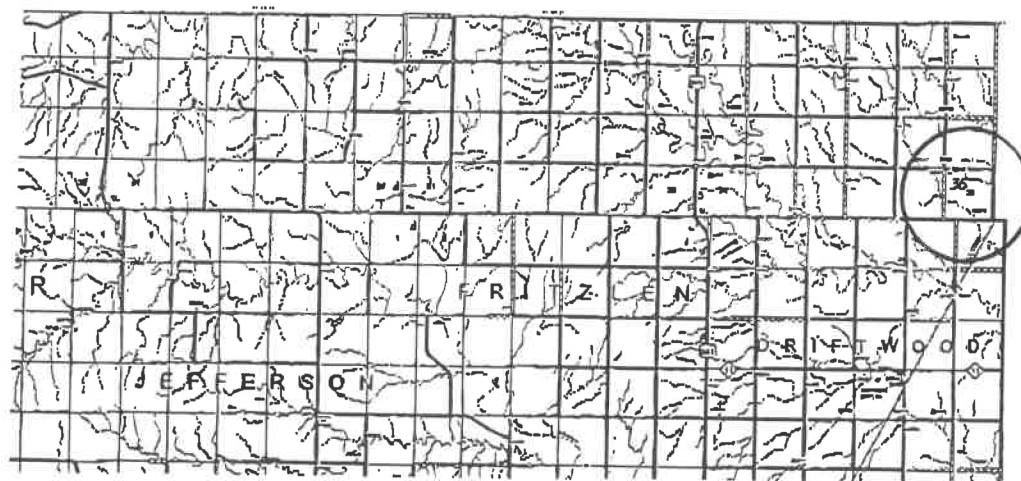 36
R
FRITZLEN
DRIFTWOOD
JEFFERSON